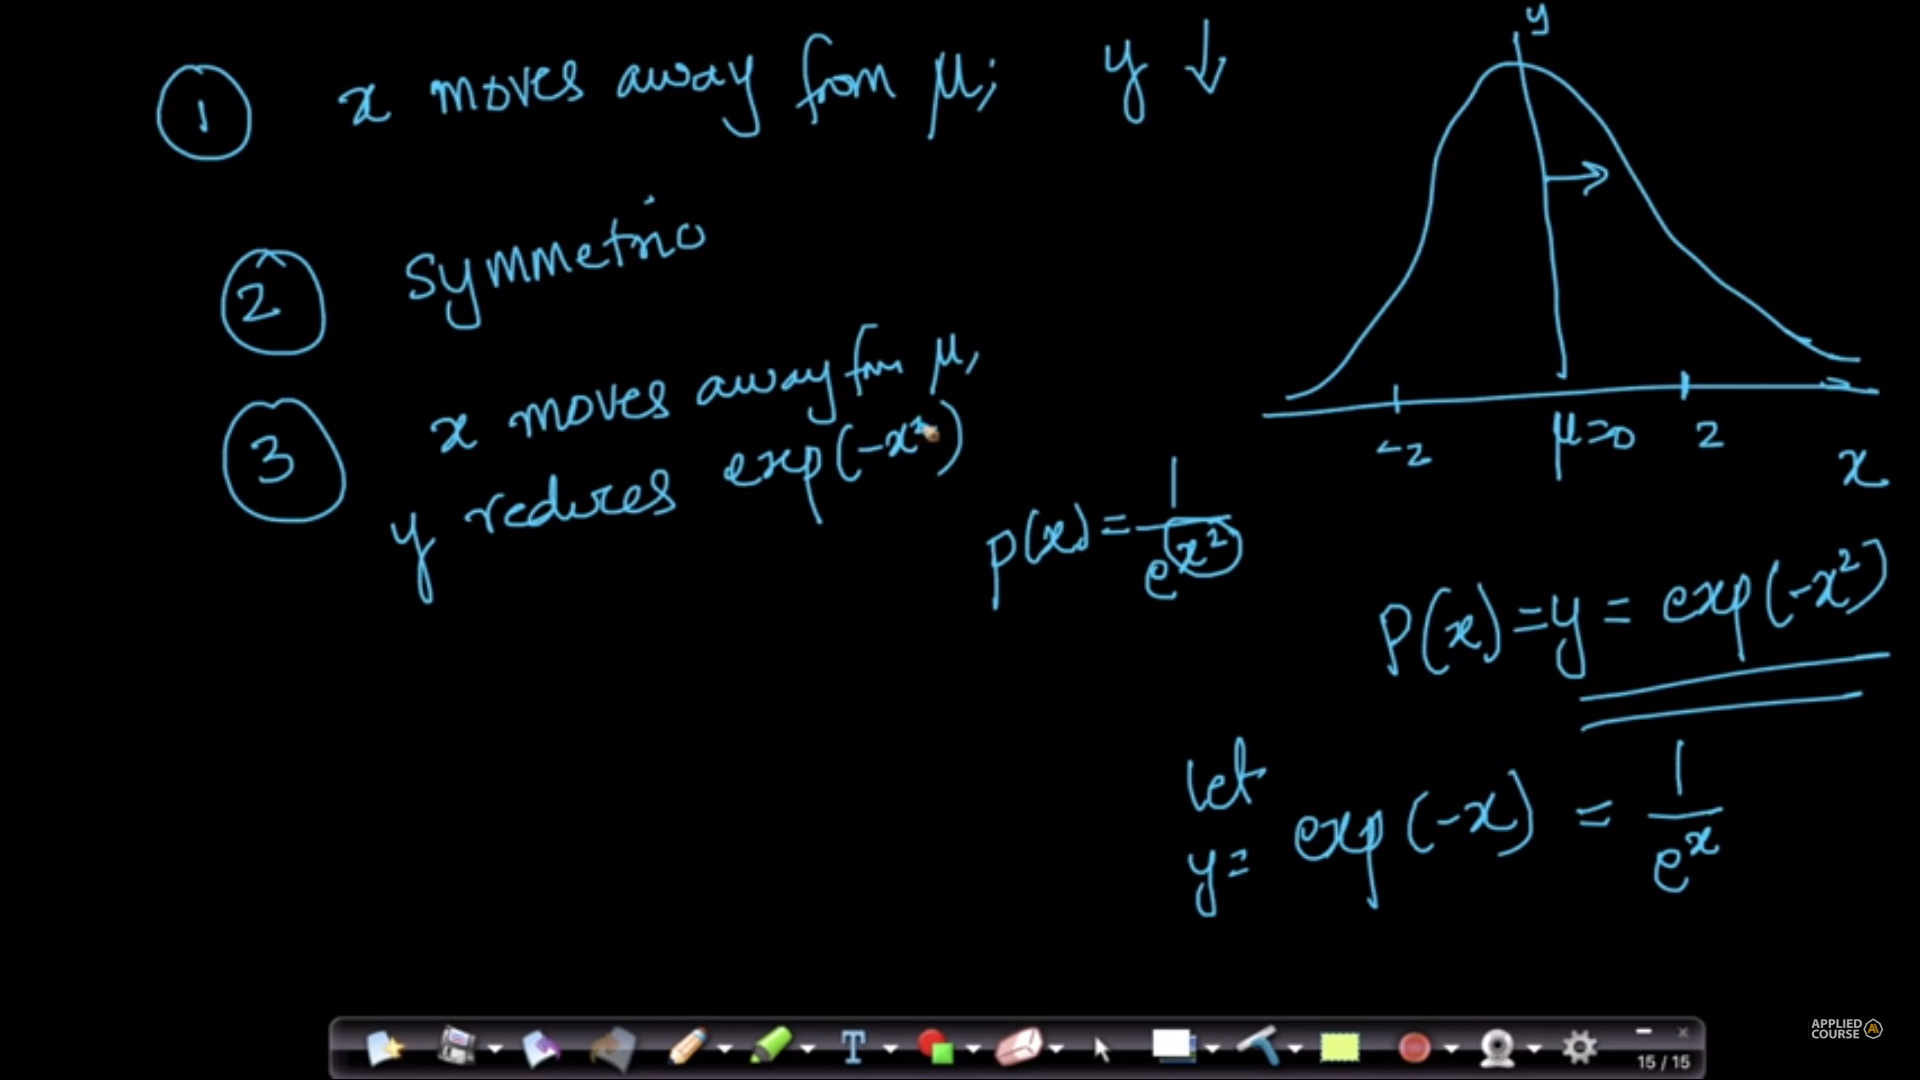 1 x moves away from μ; y ↓
2 symmetric
3 x moves away from μ,
y reduces exp(-x²)
y
-2 μ=0 2 x
p(x) = 1/e^(x²)
P(x) = y = exp(-x²)
let
y = exp(-x) = 1/e^x
T
15 / 15
APPLIED
COURSE